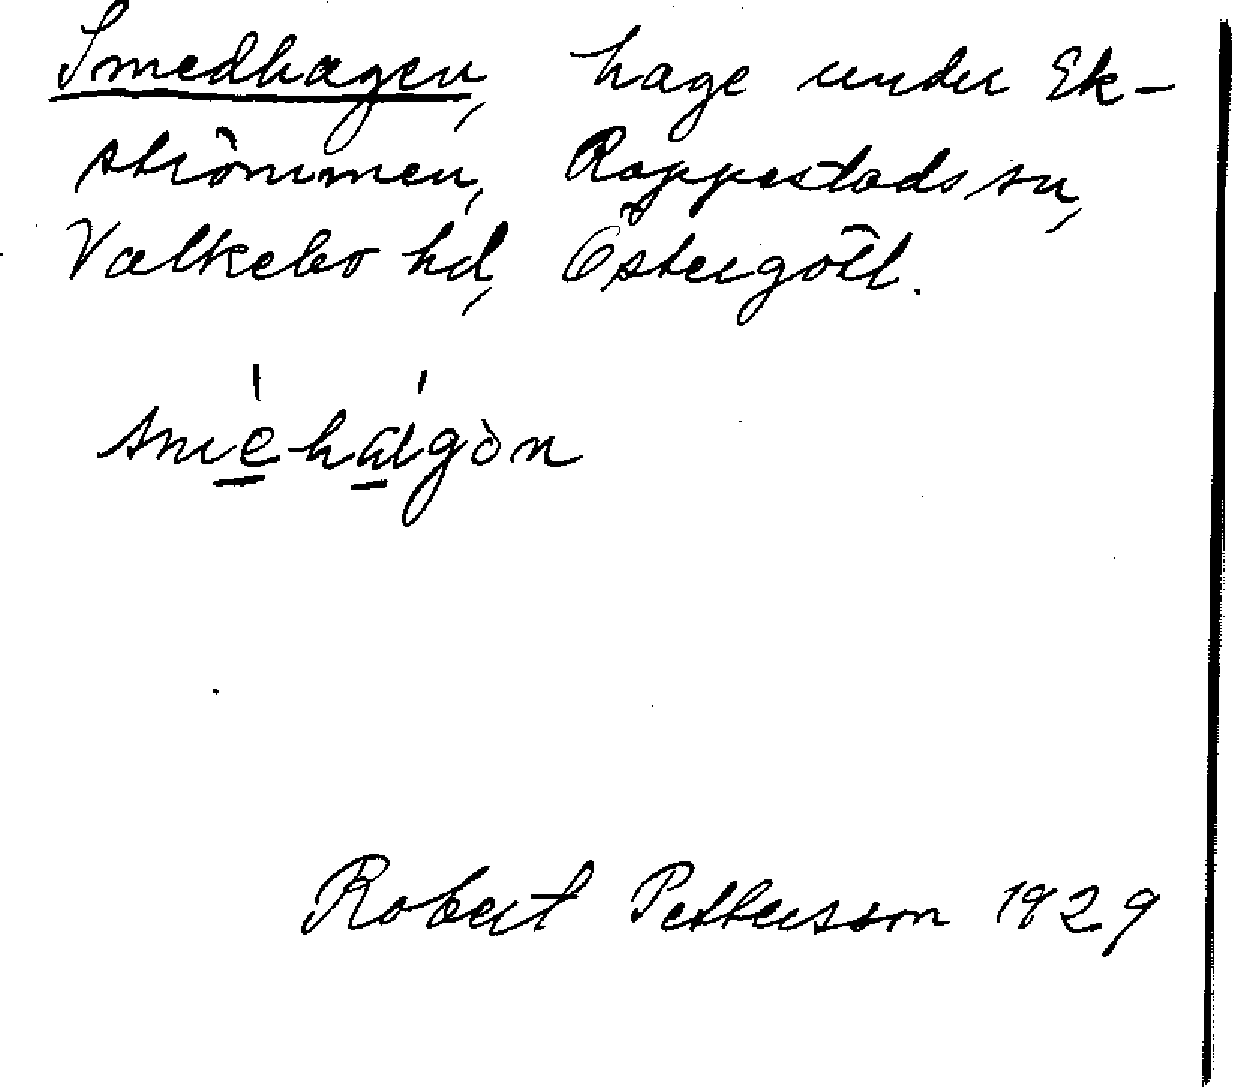 Smedhagen, hage under Ek-
strömmen, Rappestads sn,
Valkebo hd, Östergötl.
Robert Pettersson 1929